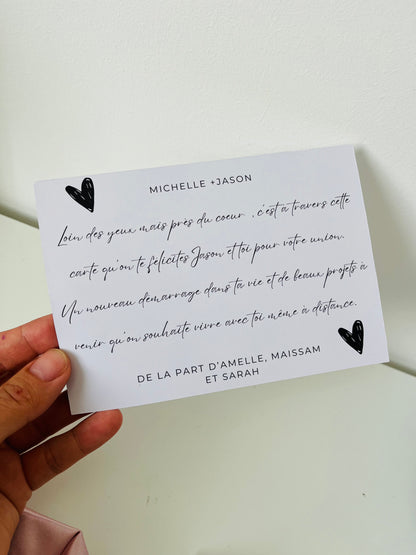 MICHELLE +JASON
Loin des yeux mais près du coeur , c'est à travers cette
carte qu'on te félicites Jason et toi pour votre union.
Un nouveau démarrage dans ta vie et de beaux projets à
venir qu'on souhaite vivre avec toi même à distance.
DE LA PART D'AMELLE, MAISSAM
ET SARAH